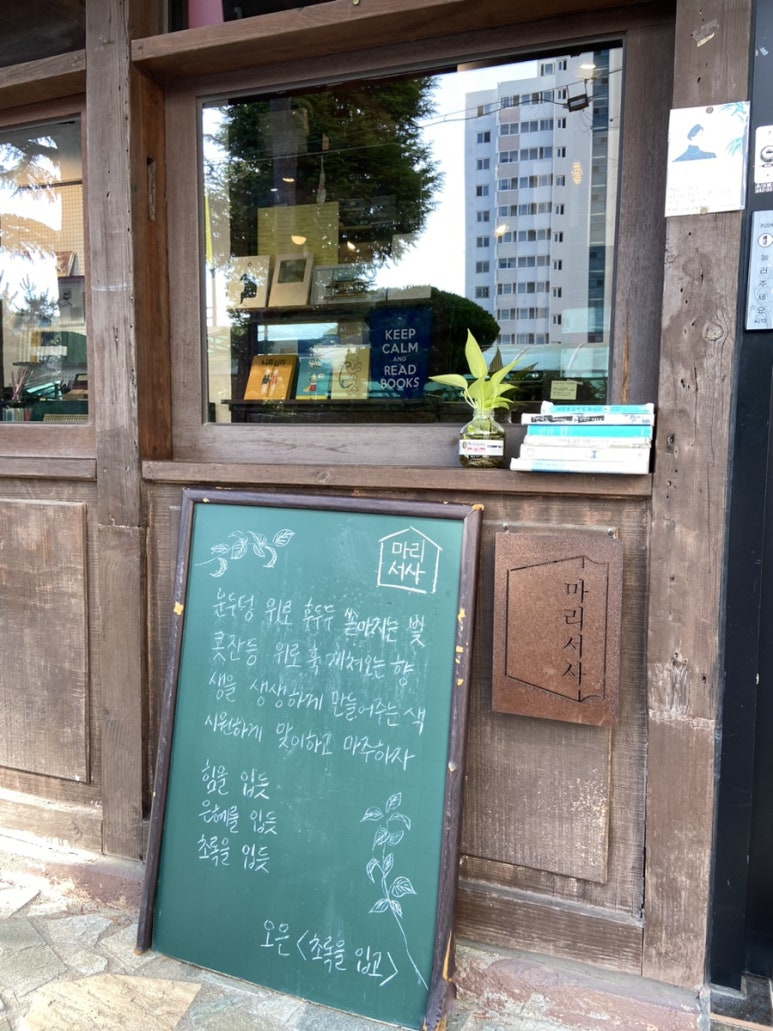 KEEP
CALM
AND
READ
BOOKS
마리
서사
눈두덩 위로 후두두 쏟아지는 빛
콧잔등 위로 훅 끼쳐오는 향
생을 생생하게 만들어주는 색
시원하게 맞이하고 마주하자
힘을 입듯
은혜를 입듯
초록을 입듯
오은 <초록을 입고>
마리서사
PUSH
눌러주세요
AUTO